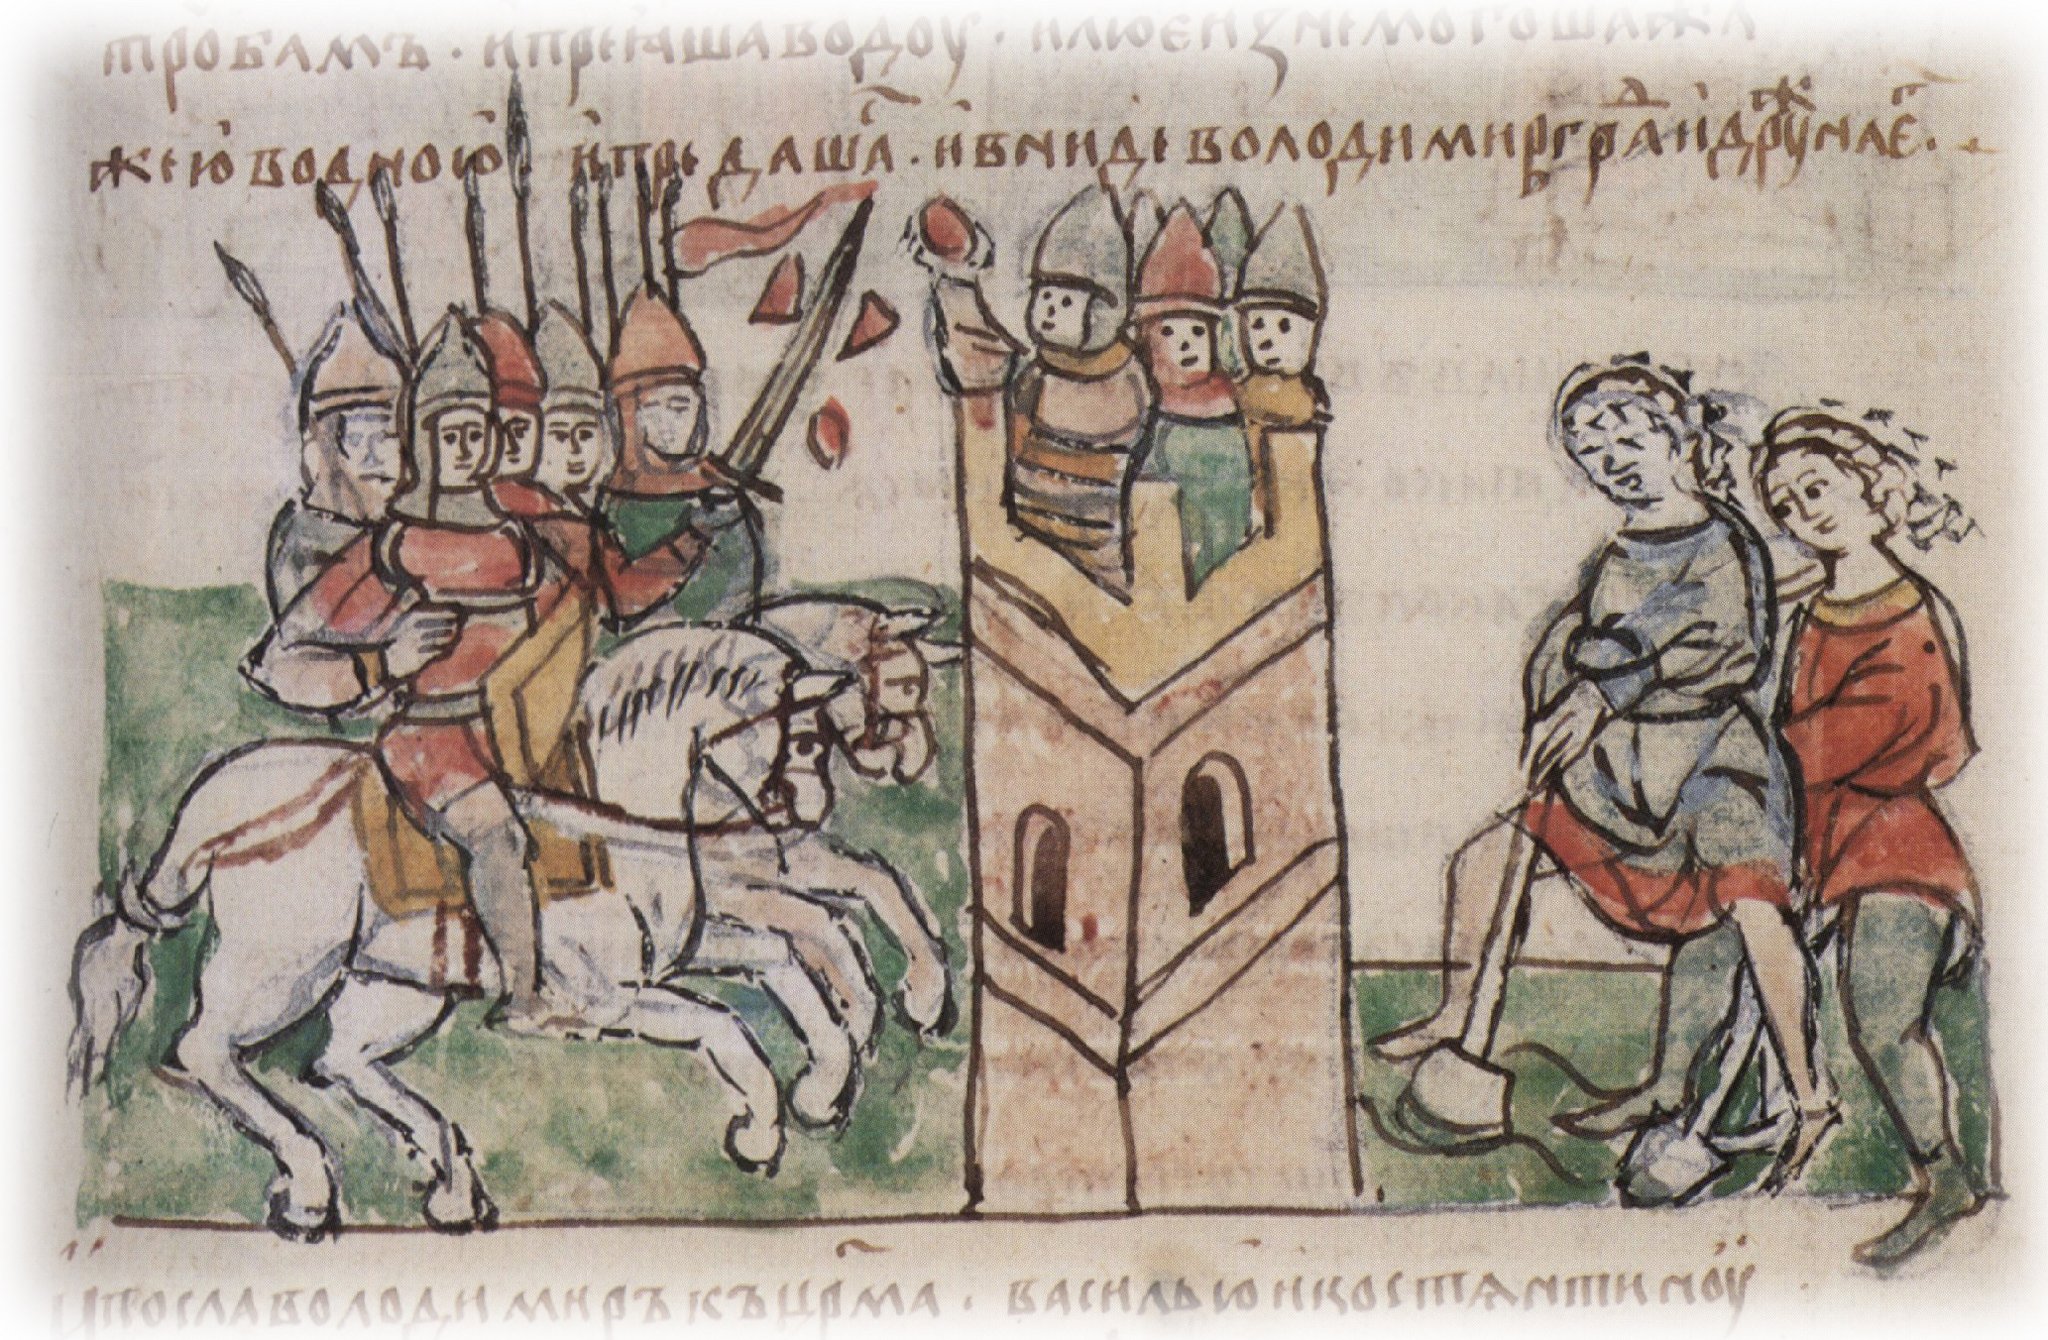 тробамъ · и преꙗша водоу · и людє изнемогоша жѧ
жею водною · и предашаⷭ҇ · и вниде володимиръ граⷣ и дрꙋⷤина еⷢ҇ ·
и посла володимиръ къ цр҃ма · василью и костѧнтиноу ·